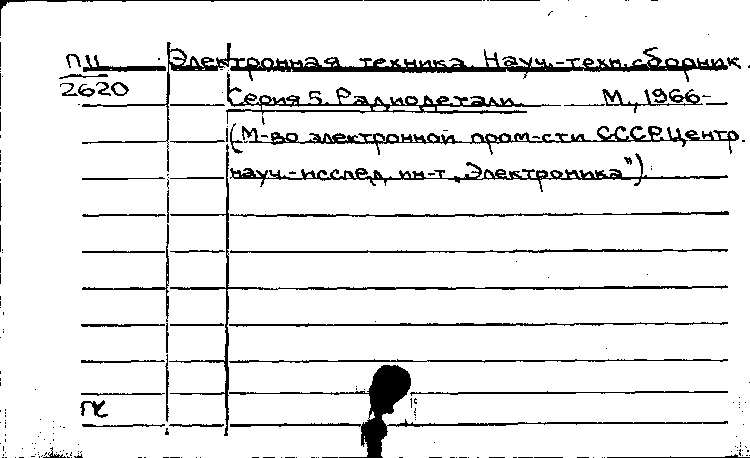 П11 Электронная техника. Науч.-техн. сборник.
2620
Серия 5. Радиодетали. М., 1966-
(М-во электронной пром-сти СССР. Центр.
науч.-исслед. ин-т "Электроника").
ПК